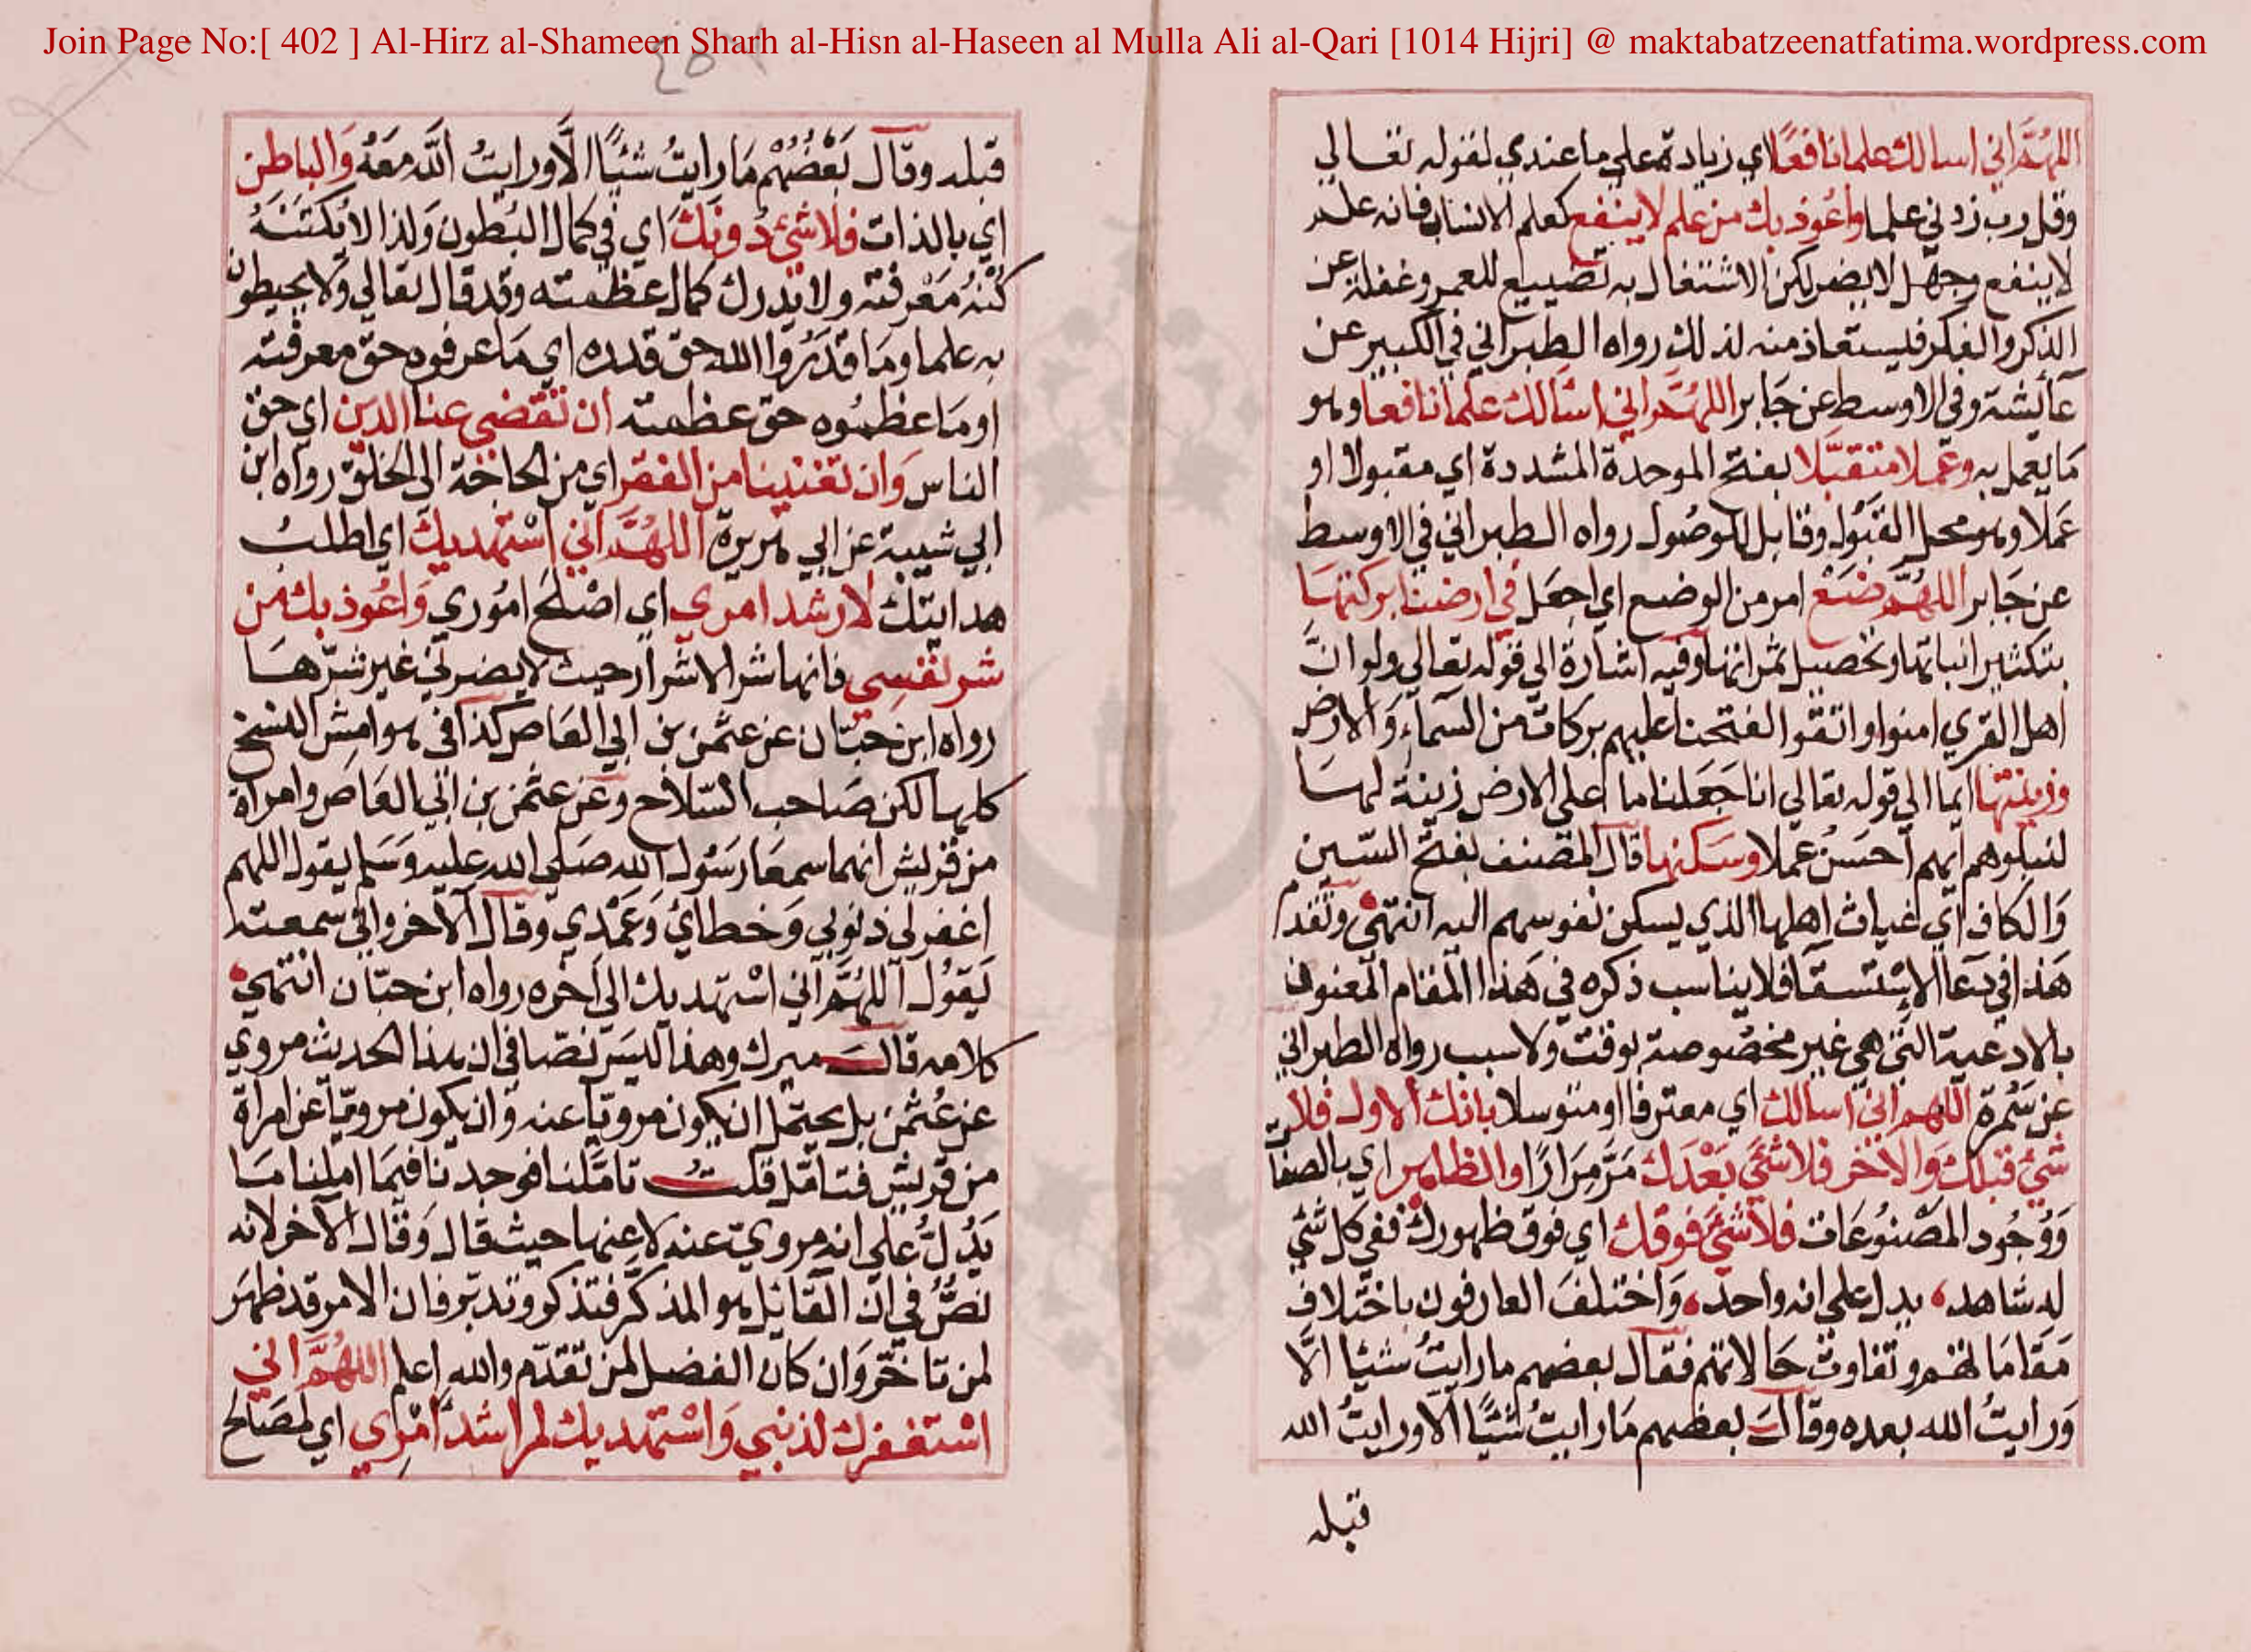 Join Page No:[ 402 ] Al-Hirz al-Shameen Sharh al-Hisn al-Haseen al Mulla Ali al-Qari [1014 Hijri] @ maktabatzeenatfatima.wordpress.com
اللهم اني اسالك علما نافعا اي زيادة علي ما عندي لقوله تعالي
وقل رب زدني علما واعوذ بك من علم لا ينفع كعلم الانساب فانه علم
لا ينفع وجهل لا يضر لكن الاشتغال به تضييع للعمر وغفلة عن
الذكر والفكر فليستعاذ منه لذلك رواه الطبراني في الكبير عن
عايشة وفي الاوسط عن جابر اللهم اني اسالك علما نافعا وهو
ما يعمل به وعملا متقبلا بفتح الموحدة المشددة اي مقبولا او
عملا وهو محل القبول وقابل للوصول رواه الطبراني في الاوسط
عن جابر اللهم ضع امر من الوضع اي اجعل في ارضنا بركتها
بتكثير انباتها وتحصيل ثمراتها وفيه اشارة الي قوله تعالي ولو ان
اهل القري امنوا واتقوا لفتحنا عليهم بركات من السماء والارض
وزينتها ايما الي قوله تعالي انا جعلنا ما علي الارض زينة لها
لنبلوهم ايهم احسن عملا وسكنها قال المصنف بفتح السين
والكاف اي غياث اهلها الذي يسكن نفوسهم اليه انتهي وتقدم
هذا في دعا الاستسقا فلا يناسب ذكره في هذا المقام المعنون
بالادعية التي هي غير مخصوصة لوقت ولا سبب رواه الطبراني
عن سمرة اللهم اني اسالك اي معترفا او متوسلا بانك الاول فلا
شي قبلك والاخر فلا شي بعدك مر مرارا والظاهر اي بالصفات
ووجود المصنوعات فلا شي فوقك اي فوق ظهورك ففي كل شي
له شاهد يدل علي انه واحد واختلف العارفون باختلاف
مقاماتهم وتفاوت حالاتهم فقال بعضهم ما رايت شيئا الا
ورايت الله بعده وقال بعضهم ما رايت شيئا الا ورايت الله
قبله
٤٥١
قبله وقال بعضهم ما رايت شيئا الا ورايت الله معه والباطن
اي بالذات فلا شي دونك اي في كمال البطون ولذا لا يكتنه
كنه معرفته ولا يدرك كمال عظمته وقد قال تعالي ولا يحيطون
به علما وما قدروا الله حق قدره اي ما عرفوه حق معرفته
او ما عظموه حق عظمته ان تقضي عنا الدين اي حق
الناس وان تغنينا من الفقر اي من الحاجة الي الخلق رواه ابن
ابي شيبة عن ابي هريرة اللهم اني استهديك اي اطلب
هدايتك لارشد امري اي اصلح اموري واعوذ بك من
شر نفسي فانها شر الاشرار حيث لا يضرني غير شرها
رواه ابن حبان عن عثمن بن ابي العاص كذا في هوامش النسخ
كلها لكن صاحب السلاح وعن عثمن بن ابي العاص وامراة
من قريش انهما سمعا رسول الله صلي الله عليه وسلم يقول اللهم
اغفر لي ذنوبي وخطاي وعمدي وقال الآخر واني سمعته
يقول اللهم اني استهديك الي آخره رواه ابن حبان انتهي
كلامه قال ميرك وهذا ليس نصا في ان هذا الحديث مروي
عن عثمن بل يحتمل ان يكون مرويا عنه وان يكون مرويا عن امراة
من قريش فتامل قلت تاملنا فوجدنا فيما املنا ما
يدل علي انه مروي عنه لا عنها حيث قال وقال الآخر لانه
نص في ان القائل هو المذكر فتذكر وتدبر فان الامر قد ظهر
لمن تاخر وان كان الفضل لمن تقدم والله اعلم اللهم اني
استغفرك لذنبي واستهديك لمراشد امري اي لمصالح